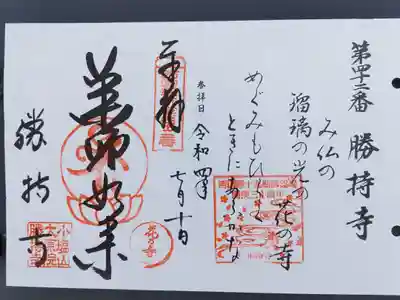 第四十二番 勝持寺
み仏の
瑠璃の光の 花の寺
めぐみもひらく
ときにあうかな
参拝日 令和四年 七月十日
奉拝
薬師如来
花の寺
勝持寺
小塩山
大原院
勝持寺